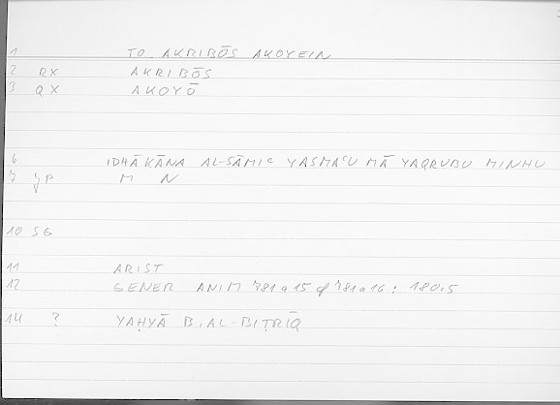 1 TO AKRIBŌS AKOYEIN
2 RX AKRIBŌS
3 QX AKOYŌ
6 IDHĀ KĀNA AL-SĀMIc YASMAcU MĀ YAQRUBU MINHU
7 M N
10 SG
11 ARIST
12 GENER ANIM 781a15 cf 781a16 : 180,5
14 ? YAḤYĀ B. AL-BIṬRĪQ